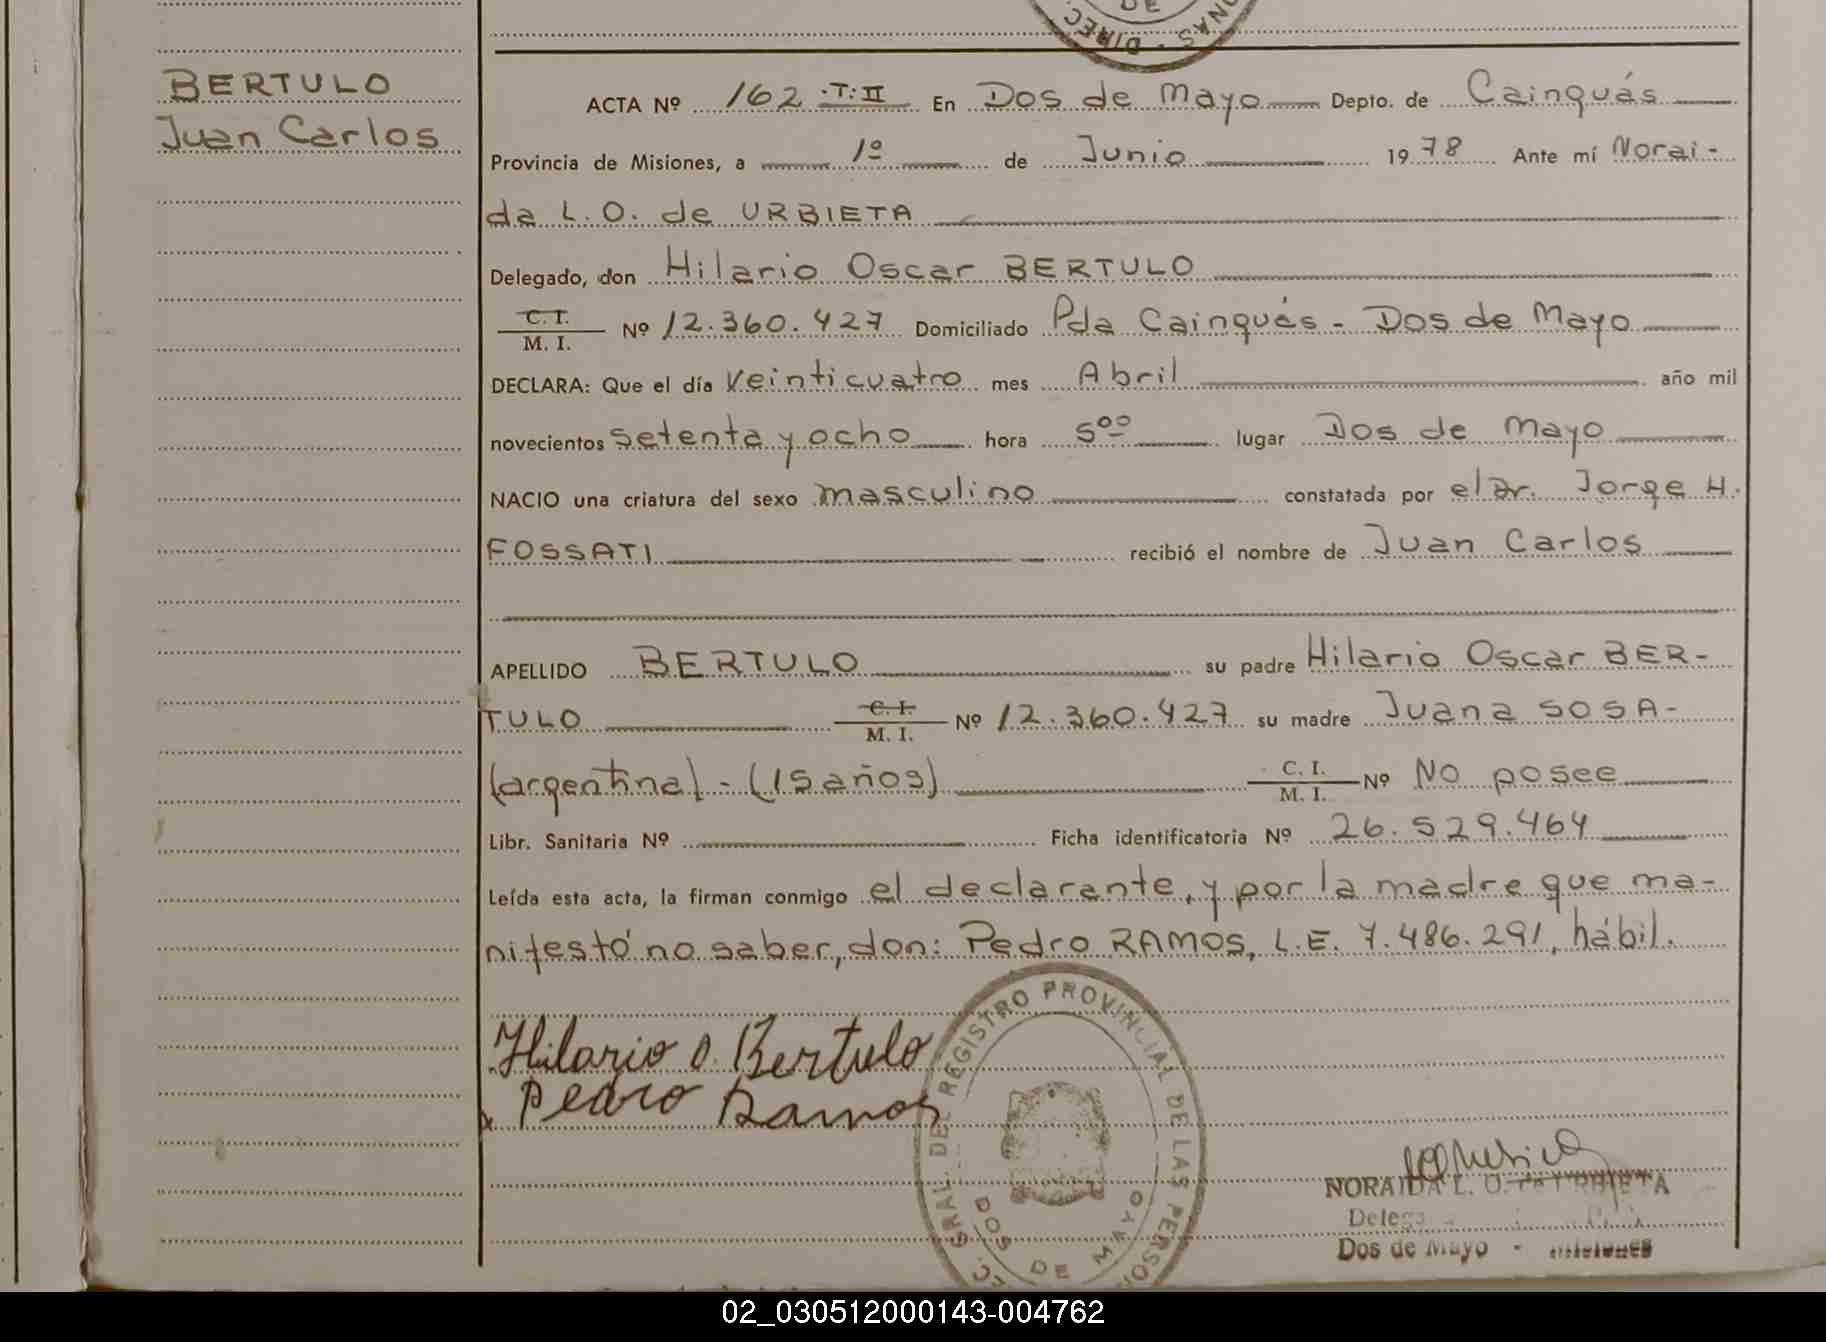 DE
DIREC.
NAS
BERTULO
Juan Carlos
ACTA Nº 162 T: II En Dos de Mayo Depto. de Cainguás
Provincia de Misiones, a 1º de Junio 1978 Ante mí Norai-
da L. O. de URBIETA
Delegado, don Hilario Oscar BERTULO
C. I.
M. I. Nº 12.360.427 Domiciliado Pda Cainguás - Dos de Mayo
DECLARA: Que el día veinticuatro mes Abril año mil
novecientos setenta y ocho hora 5⁰⁰ lugar Dos de Mayo
NACIO una criatura del sexo masculino constatada por el Dr. Jorge H.
FOSSATI recibió el nombre de Juan Carlos
APELLIDO BERTULO su padre Hilario Oscar BER-
TULO C. I. M. I. Nº 12.360.427 su madre Juana SOSA-
(argentina) - (15 años) C. I. M. I. Nº No posee
Libr. Sanitaria Nº Ficha identificatoria Nº 26.529.464
Leída esta acta, la firman conmigo el declarante, y por la madre que ma-
nifestó no saber, don: Pedro RAMOS, L.E. 7.486.291, hábil.
Hilario O. Bertulo
Pedro Ramos
GRAL. DEL REGISTRO PROVINCIAL DE LAS PERSO
DOS DE MAYO
NORAIDA L. O. DE URBIETA
Dos de Mayo - Misiones
02_030512000143-004762